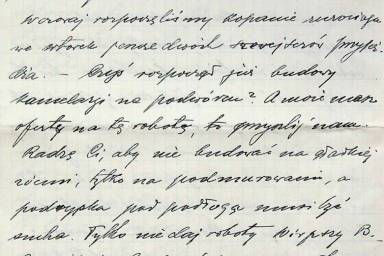 Wczoraj rozpoczęliśmy kopanie
we wtorek jeszcze dwóch przyje-
dzie. — Czyś rozpoczął już budowy
kancelarji na podwórzu? A może masz
ofertę na tę robotę, to przyślij nam.
Radzę Ci, aby nie budować na gładkiej
ziemi, tylko na podmurowaniu, a
podsypka pod podłogą musi być
sucha. Tylko nie daj roboty B.-